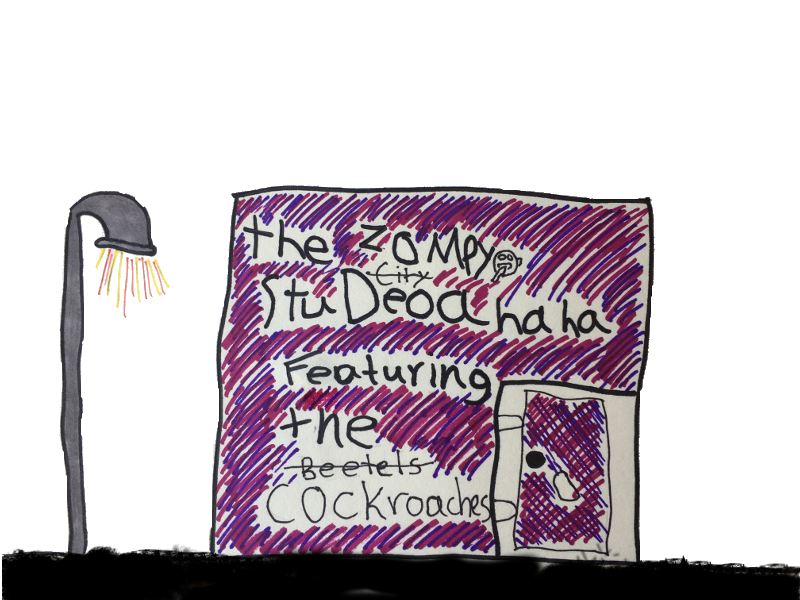 the zompy
City
StuDeoa haha
Featuring
the
Beetels
Cockroaches